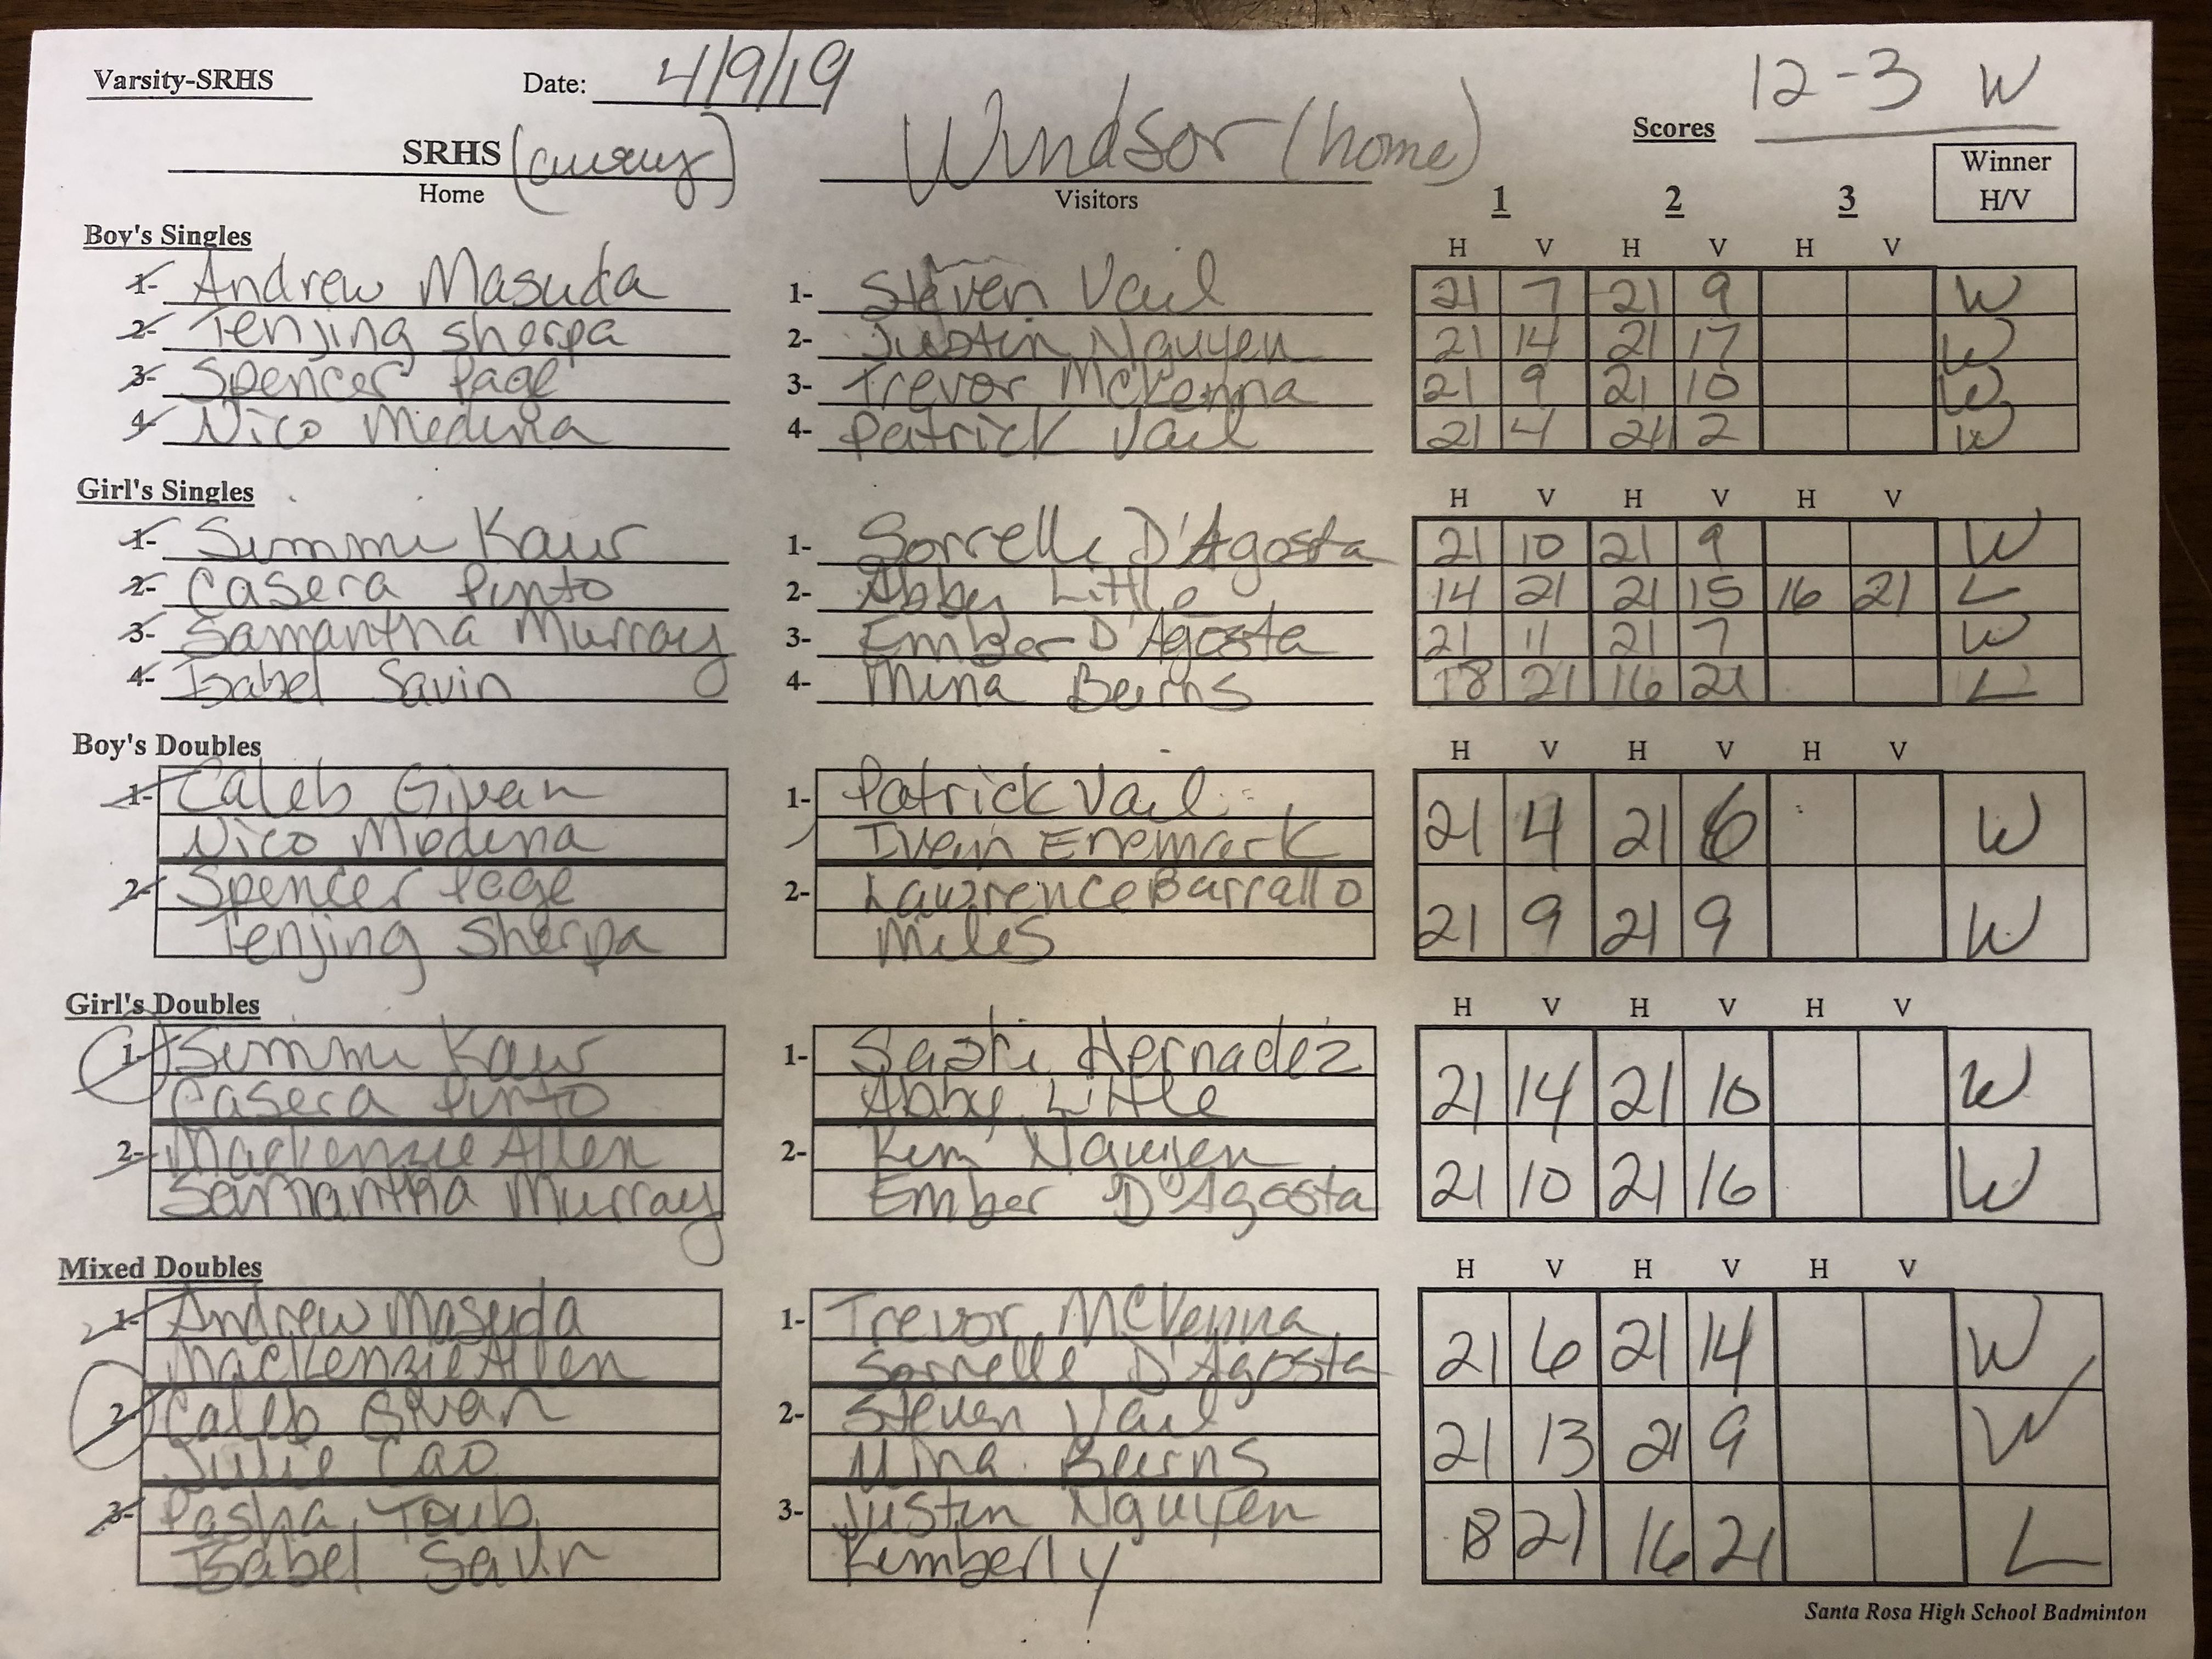 Varsity-SRHS Date: 4/9/19 12-3 W
SRHS (away) Windsor (home) Scores
Home Visitors 1 2 3 Winner H/V
Boy's Singles H V H V H V
1- Andrew Masuda 1- Steven Vail 21 7 21 9 W
2- Tenjing Sherpa 2- Justin Nguyen 21 14 21 17 W
3- Spencer Page 3- Trevor McKenna 21 9 21 10 W
4- Nico Medina 4- Patrick Vail 21 4 21 2 W
Girl's Singles H V H V H V
1- Simmi Kaur 1- Sorrelle D'Agosta 21 10 21 9 W
2- Casera Pinto 2- Abby Little 14 21 21 15 16 21 L
3- Samantha Murray 3- Ember D'Agosta 21 11 21 7 W
4- Isabel Savin 4- Mina Beerns 18 21 16 21 L
Boy's Doubles H V H V H V
1- Caleb Givan 1- Patrick Vail 21 4 21 6 W
Nico Medina Evan Enemark
2- Spencer Page 2- Lawrence Barrallo 21 9 21 9 W
Tenjing Sherpa Miles
Girl's Doubles H V H V H V
1- Simmi Kaur 1- Hernadez 21 14 21 10 W
Casera Pinto Abby Little
2- Mackenzie Allen 2- Kim Nguyen 21 10 21 16 W
Samantha Murray Ember D'Agosta
Mixed Doubles H V H V H V
1- Andrew Masuda 1- Trevor McKenna 21 6 21 14 W
Mackenzie Allen Sorrelle D'Agosta
2- Caleb Givan 2- Steven Vail 21 13 21 9 W
Julie Cao Mina Beerns
3- Pasha Toub 3- Justin Nguyen 18 21 16 21 L
Isabel Savin Kimberly
Santa Rosa High School Badminton